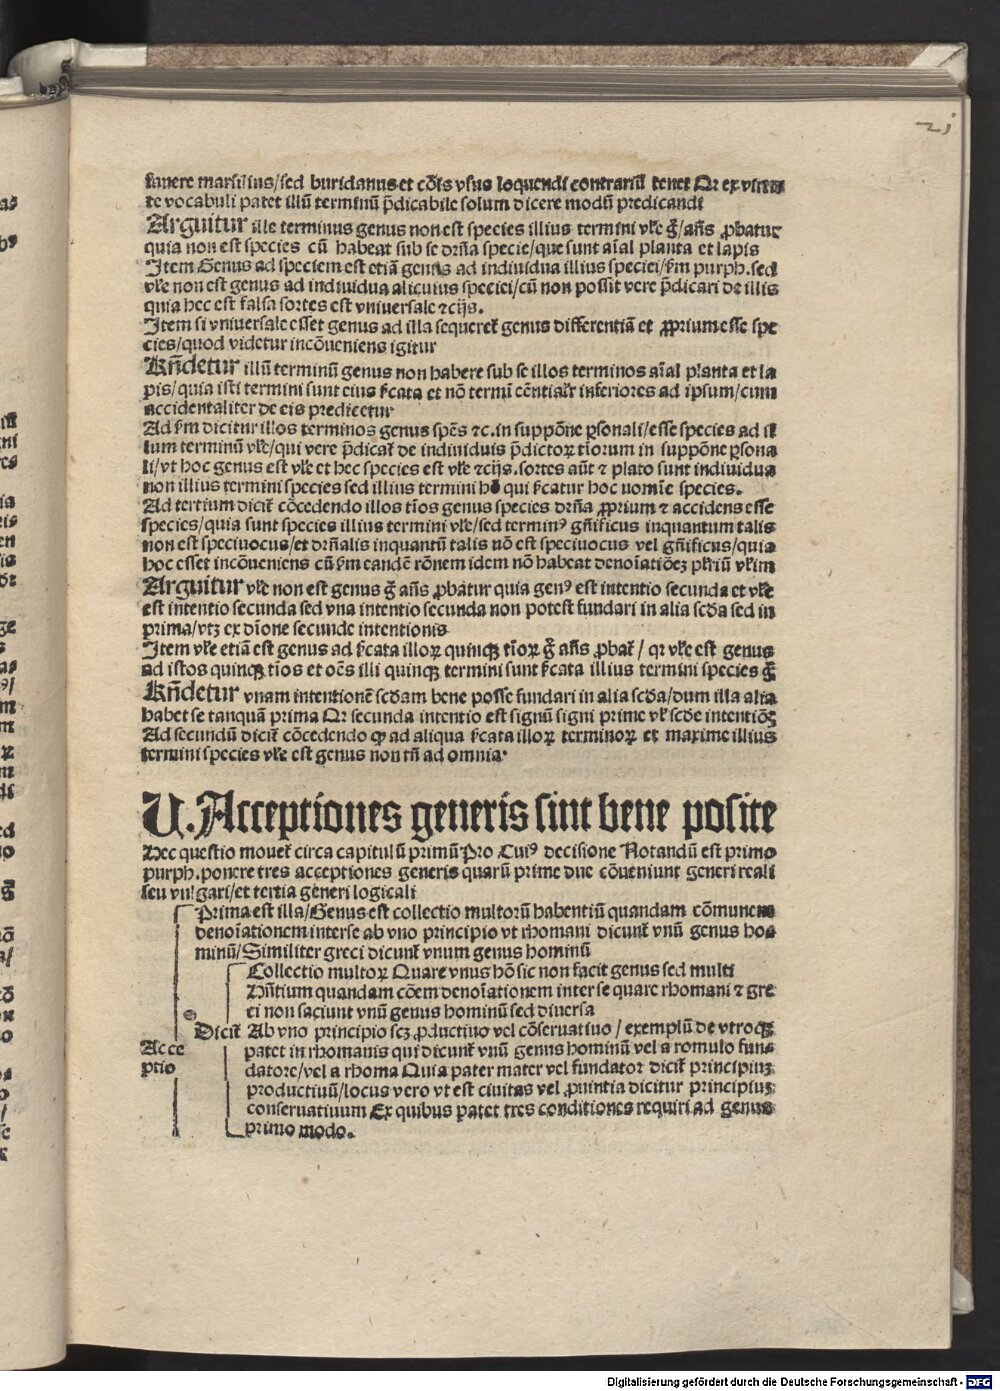 21
fauere marsilius/sed buridanus et cōis vsus loquendi contrariū tenet Qr ex virtu
te vocabuli patet illū terminū p̄dicabile solum dicere modū predicandi
Arguitur ille terminus genus non est species illius termini vłe g̊/an̄s ꝓbatur
quia non est species cū habeat sub se drn̄a specie/que sunt aīal planta et lapis
Item Genus ad speciem est etiā genus ad indiuidua illius speciei/fm purph. sed
vłe non est genus ad indiuidua alicuius speciei/cū non possit vere p̄dicari de illis
quia hec est falsa sortes est vniuersale ⁊cijs.
Item si vniuersale esset genus ad illa sequeret̄ genus differentiā et ꝓprium esse spe
cies/quod videtur incōueniens igitur
Rn̄detur illū terminū genus non habere sub se illos terminos aīal planta et la
pis/quia isti termini sunt eius s̄cata et nō termī cēntialr̄ inferiores ad ipsum/cum
accidentaliter de eis predicetur
Ad s̄m dicitur illos terminos genus spēs ⁊c. in suppōne ꝑsonali/esse species ad il
lum terminū vłe/qui vere p̄dicat̄ de indiuiduis p̄dictoꝝ t̄ioꝝum in suppōne ꝑsona
li/vt hoc genus est vłe et hec species est vłe ⁊cijs. sortes aūt ⁊ plato sunt indiuidua
non illius termini species sed illius termini hō qui s̄catur hoc nomīe species.
Ad tertium dicit̄ cōcedendo illos t̄ios genus species drn̄a ꝓprium ⁊ accidens esse
species/quia sunt species illius termini vłe/sed terminꝰ gn̄ificus inquantum talis
non est speciuocus/et drn̄alis inquantū talis nō est speciuocus vel gn̄ificus/quia
hoc esset incōueniens cū s̄m eandē rōnem idem nō habeat denoīatiōeꝫ pl̄riū vl̄im
Arguitur vłe non est genus g̊ an̄s ꝓbatur quia genꝰ est intentio secunda et vłe
est intentio secunda sed vna intentio secunda non potest fundari in alia scd̄a sed in
prima/vtꝫ ex dīone secunde intentionis
Item vłe etiā est genus ad s̄cata illoꝝ quinqꝫ t̄ioꝝ g̊ an̄s ꝓbat̄/qꝛ vłe est genus
ad istos quinqꝫ t̄ios et oēs illi quinqꝫ termini sunt s̄cata illius termini species g̊
Rn̄detur vnam intentionē scd̄am bene posse fundari in alia scd̄a/dum illa alia
habet se tanquā prima Qr secunda intentio est signū signi prime vł scd̄e intentiōꝫ
Ad secundū dicit̄ cōcedendo ꝙ ad aliqua s̄cata illoꝝ terminoꝝ et maxime illius
termini species vłe est genus non tn̄ ad omnia.
U. Acceptiones generis sint bene posite
Hec questio mouet̄ circa capitulū primū Pro Cuiꝰ decisione Notandū est primo
purph. ponere tres acceptiones generis quarū prime due cōueniunt generi reali
seu vulgari/et tertia generi logicali
Prima est illa/Genus est collectio multorū habentiū quandam cōmunem
denoīationem inter se ab vno principio vt rhomani dicunt̄ vnū genus ho
minū/Similiter greci dicunt̄ vnum genus hominū
Collectio multoꝝ Quare vnus hō sic non facit genus sed multi
Hn̄tium quandam cōem denoīationem inter se quare rhomani ⁊ gre
ci non faciunt vnū genus hominū sed diuersa
Dicit̄ Ab vno principio scꝫ ꝓductiuo vel cōseruatiuo/exemplū de vtroqꝫ
Acce
ptio
patet in rhomanis qui dicunt̄ vnū genus hominū vel a romulo fun
datore/vel a rhoma Quia pater mater vel fundator dicit̄ principiuꝫ
productiuū/locus vero vt est ciuitas vel ꝓuintia dicitur principiuꝫ
conseruatiuum Ex quibus patet tres conditiones requiri ad genus
primo modo.
Digitalisierung gefördert durch die Deutsche Forschungsgemeinschaft - DFG